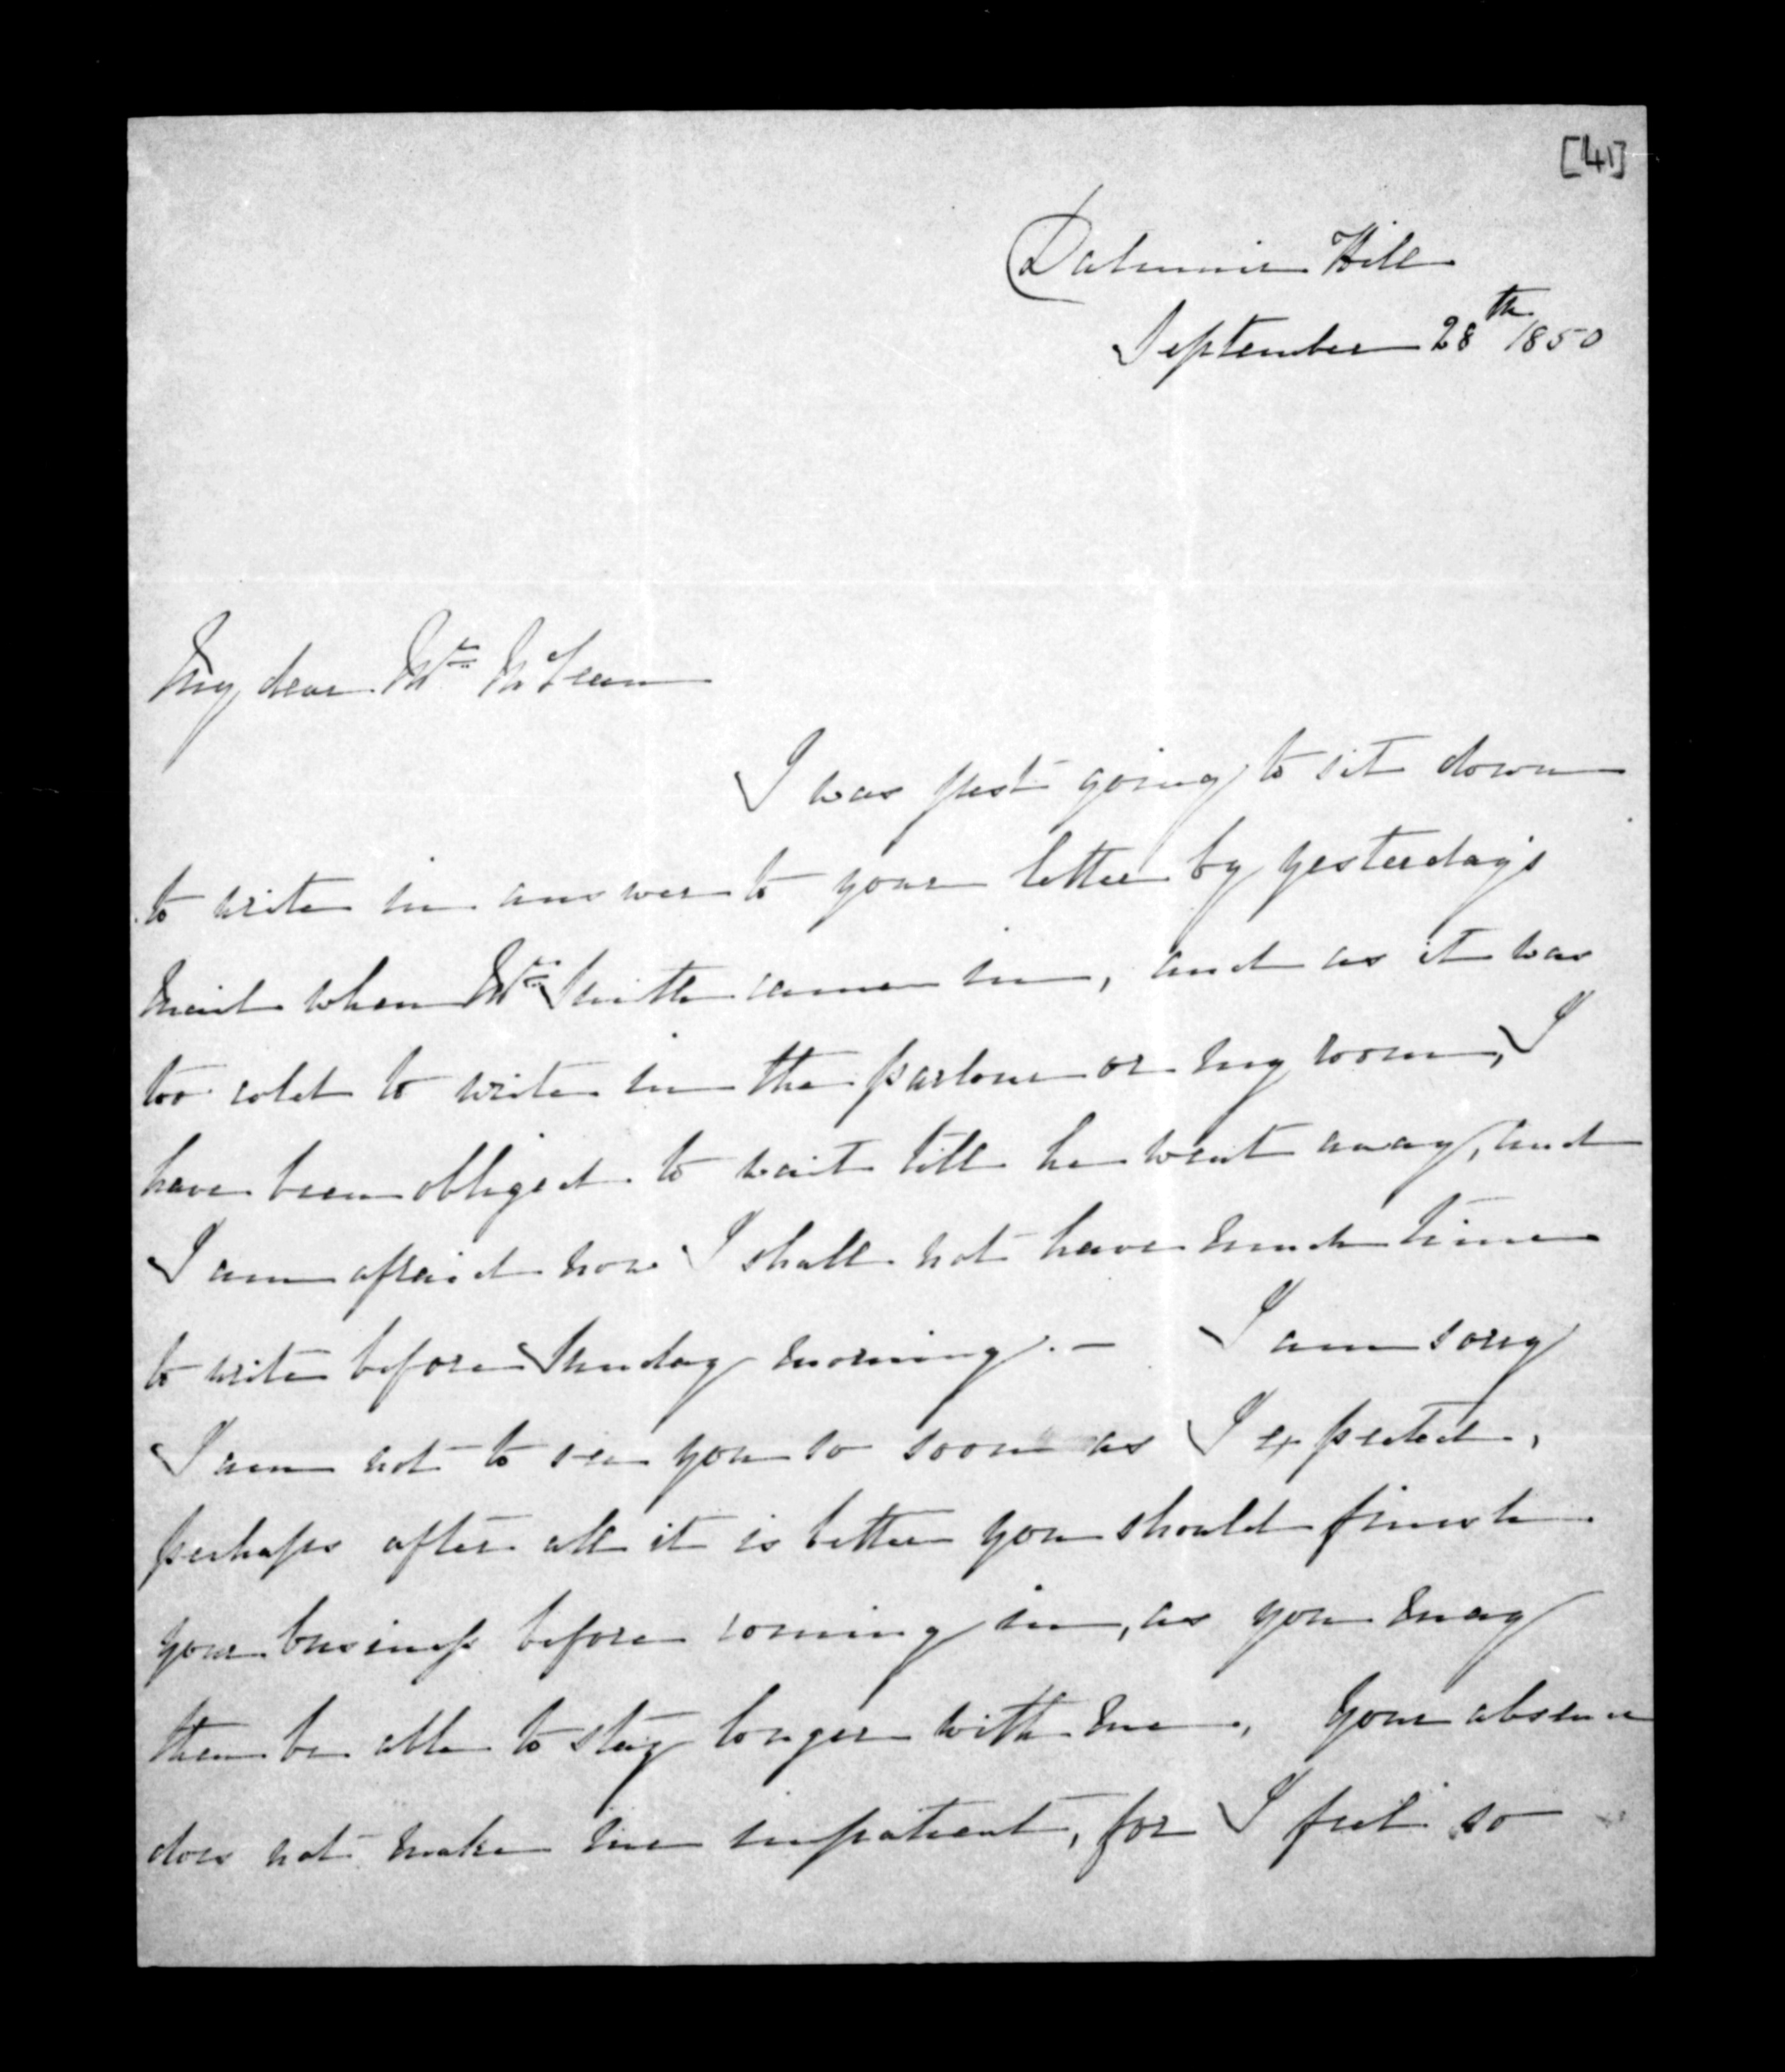 [41]
Dalmuir Hill
September 28th 1850
My dear Mr McLean
I was just going to sit down
to write in answer to your letter by yesterday's
mail when Mr Smith came in, and as it was
too cold to write in the parlour or my room, I
have been obliged to wait till he went away, and
I am afraid now I shall not have much time
to write before Sunday morning. - I am sorry
I am not to see you so soon as I expected,
perhaps after all it is better you should finish
your business before coming in, as you may
then be able to stay longer with me, your absence
does not make me impatient, for I feel so